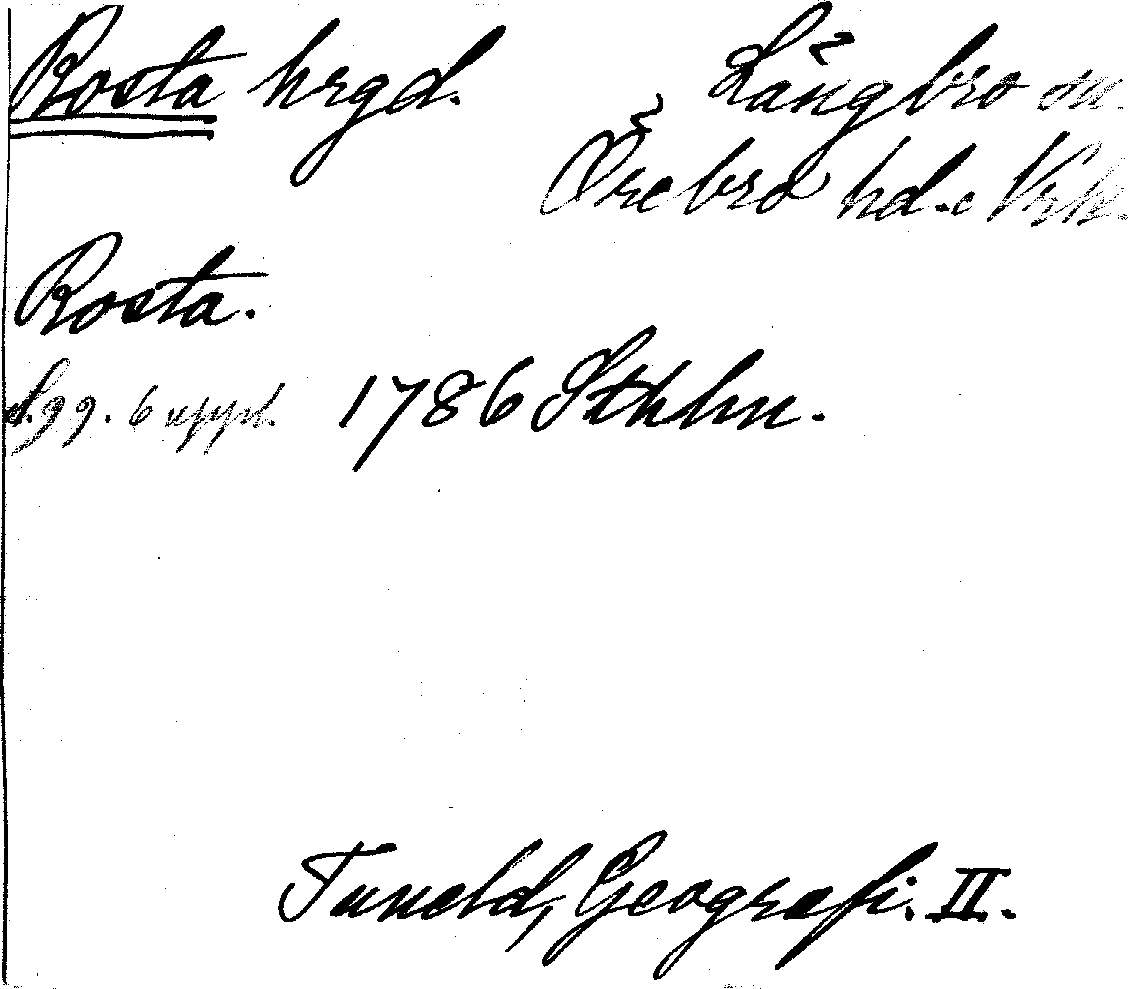 Rosta hrgd. Längbro sn.
Örebro hd. Nrk.
Rosta.
6 uppl. 1786 Sthlm.
Tuneld, Geografi. II.